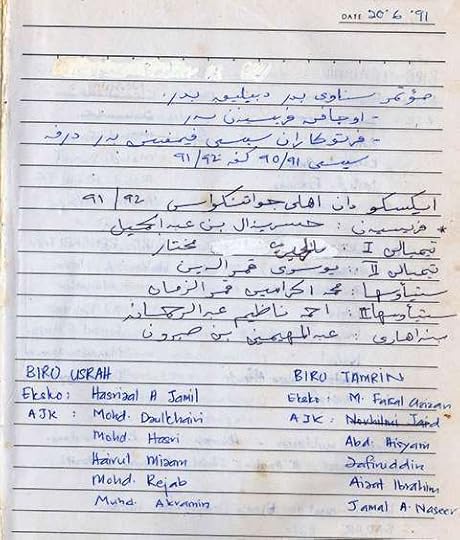 DATE 20·6·'91
مؤتمر سناوي بدر دبيليق بدر.
- اوچاڤن ڤريسيدن بدر
- ڤرتوكاران سيسي ڤيمڤينن بدر درڤد
سيسي ٩٠/٩١ كڤد ٩١/٩٢
ايكسكو دان اهلي جواتنكواس ٩١/٩٢
* ڤريسيدن : حسريزال بن عبدالجميل
تيمبالن I : مختار
تيمبالن II : يوسري قمرالدين
ستياوسها I : محمد اكرامين قمرالزمان
ستياوسها II : احمد ناظيم عبدالرحمان
بنداهاري : عبدالمهيمن بن صبرون
BIRO USRAH
Eksko : Hasrizal A Jamil
AJK : Mohd. Daulkhairi
Mohd. Hasri
Hairul Mizam
Mohd. Rejab
Muhd. Akramin
BIRO TAMRIN
Eksko : M. Faisal Azizan
AJK : Novhilmi Jaid
Abd. Hisyam
Zafiruddin
Aizat Ibrahim
Jamal A. Naseer